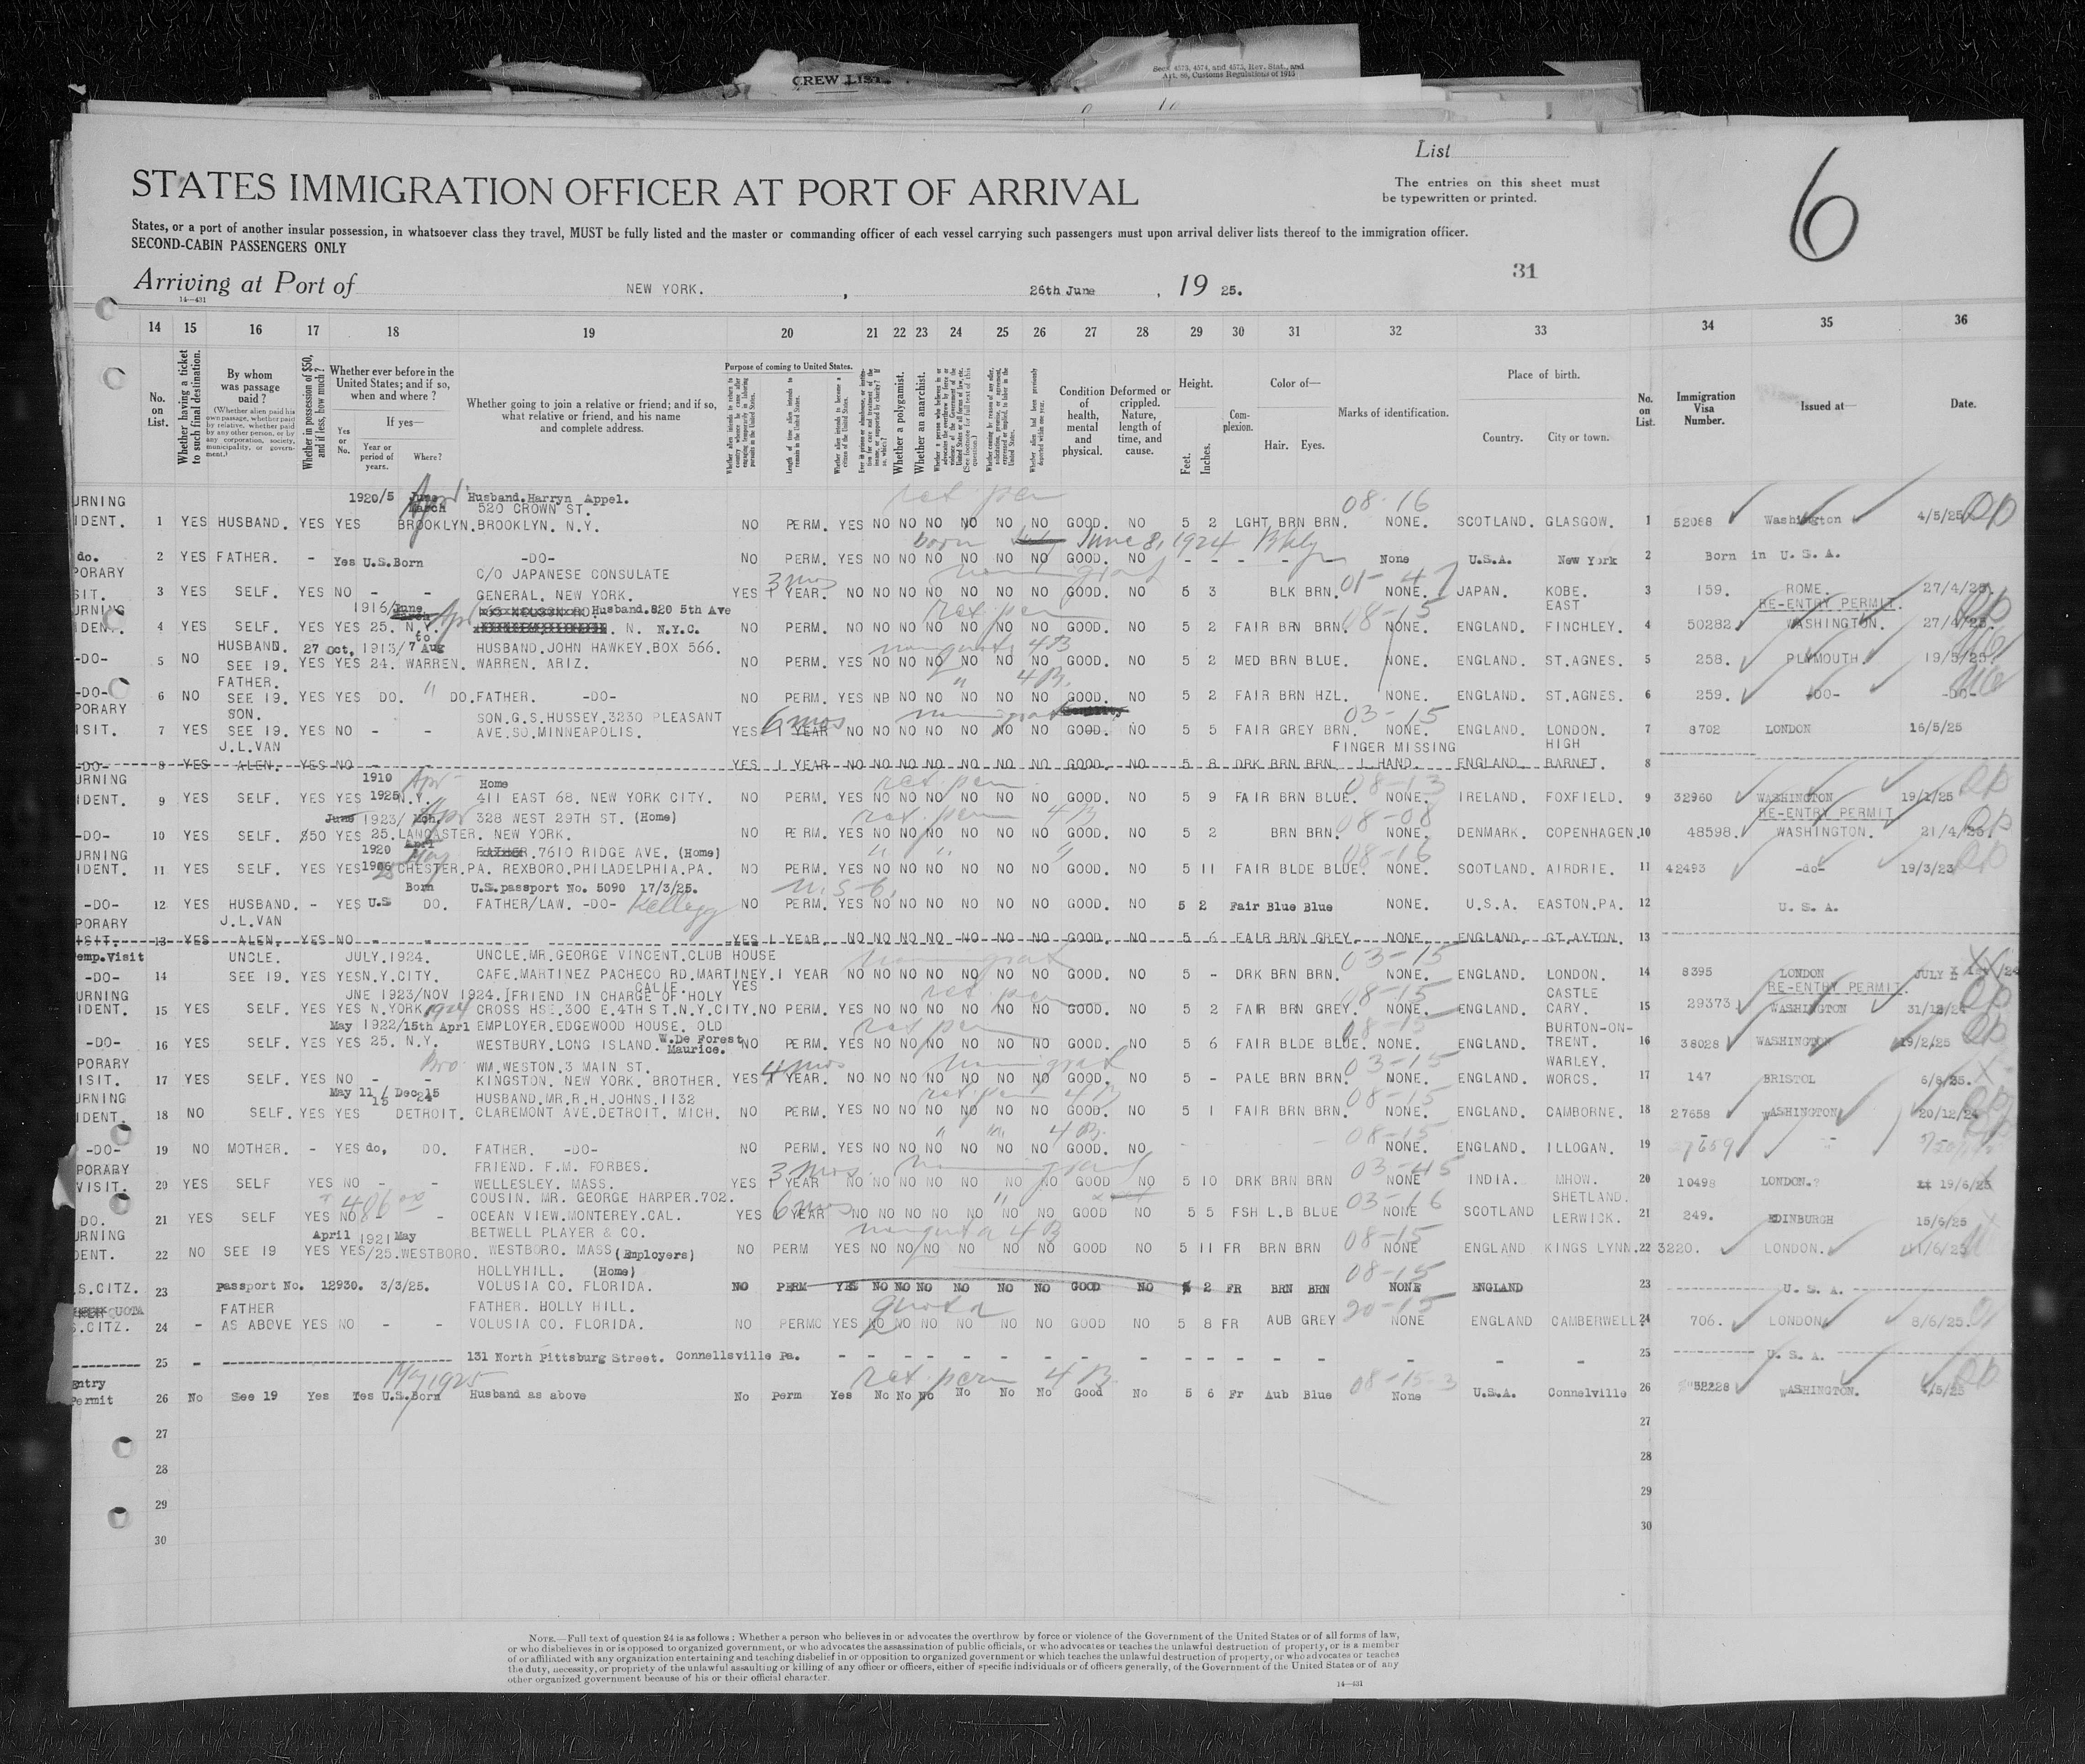 CREW LIST
Secs. 4573, 4574, and 4575, Rev. Stat., and
Art. 89, Customs Regulations of 1915
List
6
STATES IMMIGRATION OFFICER AT PORT OF ARRIVAL
The entries on this sheet must
be typewritten or printed.
States, or a port of another insular possession, in whatsoever class they travel, MUST be fully listed and the master or commanding officer of each vessel carrying such passengers must upon arrival deliver lists thereof to the immigration officer.
SECOND-CABIN PASSENGERS ONLY
31
Arriving at Port of NEW YORK. , 26th June , 19 25.
14—431
14 15 16 17 18 19 20 21 22 23 24 25 26 27 28 29 30 31 32 33 34 35 36
No. on List.
Whether having a ticket to such final destination.
By whom was passage paid?
(Whether alien paid his own passage, whether paid by relative, whether paid by any other person, or by any corporation, society, municipality, or government.)
Whether in possession of $50, and if less, how much?
Whether ever before in the United States; and if so, when and where?
If yes—
Yes or No.
Year or period of years.
Where?
Whether going to join a relative or friend; and if so, what relative or friend, and his name and complete address.
Purpose of coming to United States.
Length of time alien intends to remain in the United States.
Whether alien intends to become a citizen of the United States.
Whether a polygamist.
Whether an anarchist.
Condition of health, mental and physical.
Deformed or crippled. Nature, length of time, and cause.
Height.
Feet. Inches.
Complexion.
Color of—
Hair. Eyes.
Marks of identification.
Place of birth.
Country. City or town.
No. on List.
Immigration Visa Number.
Issued at—
Date.
URNING 1920/5 June March Apr Husband.Harryn Appel. ret. per 08-16
520 CROWN ST.
IDENT. 1 YES HUSBAND. YES YES BROOKLYN. BROOKLYN. N.Y. NO PERM. YES NO NO NO NO NO NO GOOD. NO 5 2 LGHT BRN BRN. NONE. SCOTLAND. GLASGOW. 1 52088 Washington 4/5/25
born June 8, 1924 Bkly
do. 2 YES FATHER. - Yes U.S.Born -DO- NO PERM. YES NO NO NO NO NO NO GOOD. NO - - - - None U.S.A. New York 2 Born in U.S.A.
PORARY C/O JAPANESE CONSULATE 3 mos 01-47
SIT. 3 YES SELF. YES NO - - GENERAL. NEW YORK. YES 1 YEAR. NO NO NO NO NO NO NO GOOD. NO 5 3 BLK BRN. NONE. JAPAN. KOBE. 3 159. ROME. 27/4/25.
URNING 1916/June Apr Husband.820 5th Ave ret per 08-15 EAST RE-ENTRY PERMIT.
IDENT. 4 YES SELF. YES YES 25. N.Y. N. N.Y.C. NO PERM. NO NO NO NO NO NO NO GOOD. NO 5 2 FAIR BRN BRN. NONE. ENGLAND. FINCHLEY. 4 50282 WASHINGTON.
HUSBAND. 27 Oct, 1913/ to 7 Aug HUSBAND.JOHN HAWKEY.BOX 566. non quota 4B
-DO- 5 NO SEE 19. YES YES 24. WARREN. WARREN. ARIZ. NO PERM. YES NO NO NO NO NO NO GOOD. NO 5 2 MED BRN BLUE. NONE. ENGLAND. ST.AGNES. 5 258. PLYMOUTH. 19/5/25
FATHER. " 4B.
-DO- 6 NO SEE 19. YES YES DO. " DO. FATHER. -DO- NO PERM. YES NO NO NO NO NO NO GOOD. NO 5 2 FAIR BRN HZL. NONE. ENGLAND. ST.AGNES. 6 259. -DO- -DO-
PORARY SON. SON.G.S.HUSSEY.3230 PLEASANT 6 mos 03-15
ISIT. 7 YES SEE 19. YES NO - - AVE.SO.MINNEAPOLIS. YES 1 YEAR NO NO NO NO NO NO NO GOOD. NO 5 5 FAIR GREY BRN. NONE. ENGLAND. LONDON. 7 8702 LONDON 16/5/25
J.L.VAN FINGER MISSING HIGH
-DO- 8 YES ALEN. YES NO - YES 1 YEAR NO NO NO NO NO NO NO GOOD. NO 5 8 DRK BRN BRN L.HAND. ENGLAND. BARNET. 8
URNING 1910 Apr Home ret. per. 08-13
IDENT. 9 YES SELF. YES YES 1925 N.Y. 411 EAST 68. NEW YORK CITY. NO PERM. YES NO NO NO NO NO NO GOOD. NO 5 9 FAIR BRN BLUE. NONE. IRELAND. FOXFIELD. 9 32960 WASHINGTON 19/1/25
June 1923/ Mch. Apr 328 WEST 29TH ST. (Home) ret. perm 4B 08-08 RE-ENTRY PERMIT.
-DO- 10 YES SELF. $50 YES 25. LANCASTER. NEW YORK. NO PERM. YES NO NO NO NO NO NO GOOD. NO 5 2 BRN BRN. NONE. DENMARK. COPENHAGEN. 10 48598. WASHINGTON. 21/4/25.
URNING 1920 April May FATHER.7610 RIDGE AVE. (Home) " " " 08-16
IDENT. 11 YES SELF. YES YES CHESTER.PA. REXBORO.PHILADELPHIA.PA. NO PERM. YES NO NO NO NO NO NO GOOD. NO 5 11 FAIR BLDE BLUE. NONE. SCOTLAND. AIRDRIE. 11 42493 -do- 19/3/23
Born U.S.passport No. 5090 17/3/25. U.S.C.
-DO- 12 YES HUSBAND. - YES U.S DO. FATHER/LAW. -DO- Kellogg NO PERM. YES NO NO NO NO NO NO GOOD. NO 5 2 Fair Blue Blue NONE. U.S.A. EASTON.PA. 12 U.S.A.
PORARY J.L.VAN
ISIT. 13 YES ALEN. YES NO - - YES 1 YEAR. NO NO NO NO NO NO NO GOOD. NO 5 6 FAIR BRN GREY. NONE. ENGLAND. GT.AYTON. 13
emp.Visit UNCLE. JULY.1924. UNCLE.MR.GEORGE VINCENT.CLUB HOUSE 03-15
-DO- 14 SEE 19. YES YES N.Y.CITY. CAFE.MARTINEZ PACHECO RD.MARTINEY. 1 YEAR NO NO NO NO NO NO NO GOOD. NO 5 - DRK BRN BRN. NONE. ENGLAND. LONDON. 14 8395 LONDON
CALIF. YES
URNING JNE 1923/NOV 1924. FRIEND IN CHARGE OF HOLY ret. per 08-15 CASTLE RE-ENTRY PERMIT.
IDENT. 15 YES SELF. YES YES N.YORK 1924 CROSS HSE.300 E.4TH ST.N.Y.CITY. NO PERM. YES NO NO NO NO NO NO GOOD. NO 5 2 FAIR BRN GREY. NONE. ENGLAND. CARY. 15 29373 WASHINGTON 31/12/24
May 1922/15th Aprl EMPLOYER.EDGEWOOD HOUSE. OLD ret per 08-15 BURTON-ON-
-DO- 16 YES SELF. YES YES 25. N.Y. WESTBURY.LONG ISLAND. W.De Forest Maurice. NO PERM. YES NO NO NO NO NO NO GOOD. NO 5 6 FAIR BLDE BLUE. NONE. ENGLAND. TRENT. 16 38028 WASHINGTON 19/2/25
PORARY Bro WM.WESTON.3 MAIN ST. 4 mos 03-15 WARLEY.
ISIT. 17 YES SELF. YES NO - - KINGSTON. NEW YORK. BROTHER. YES 1 YEAR. NO NO NO NO NO NO NO GOOD. NO 5 - PALE BRN BRN. NONE. ENGLAND. WORCS. 17 147 BRISTOL
URNING May 11/15 Dec 15 24 HUSBAND.MR.R.H.JOHNS.1132 ret. per 4B 08-15
IDENT. 18 NO SELF. YES YES DETROIT. CLAREMONT AVE.DETROIT. MICH. NO PERM. YES NO NO NO NO NO NO GOOD. NO 5 1 FAIR BRN BRN. NONE. ENGLAND. CAMBORNE. 18 27658 WASHINGTON 20/12/24
" " 4B. 08-15
-DO- 19 NO MOTHER. - YES do, DO. FATHER. -DO- NO PERM. YES NO NO NO NO NO NO GOOD. NO - NONE. ENGLAND. ILLOGAN. 19 27659 "
PORARY FRIEND. F.M. FORBES. 3 mos. 03-45
VISIT. 20 YES SELF YES NO - - WELLESLEY. MASS. YES 1 YEAR NO NO NO NO NO NO NO GOOD NO 5 10 DRK BRN BRN NONE INDIA. MHOW. 20 10498 LONDON.? 19/6/25
COUSIN. MR. GEORGE HARPER.702. 6 mos " 03-16 SHETLAND.
DO. 21 YES SELF YES NO - - OCEAN VIEW.MONTEREY.CAL. YES YEAR NO NO NO NO NO NO NO GOOD NO 5 5 FSH L.B BLUE NONE SCOTLAND LERWICK. 21 249. EDINBURGH 15/6/25
URNING April 1921 May BETWELL PLAYER & CO. non quota 4B 08-15
DENT. 22 NO SEE 19 YES YES /25. WESTBORO. WESTBORO. MASS (Employers) NO PERM YES NO NO NO NO NO NO GOOD NO 5 11 FR BRN BRN NONE ENGLAND KINGS LYNN. 22 3220. LONDON.
HOLLYHILL. (Home) 08-15
.S.CITZ. 23 passport No. 12930. 3/3/25. VOLUSIA CO. FLORIDA. NO PERM YES NO NO NO NO NO NO GOOD NO 5 2 FR BRN BRN NONE ENGLAND 23 U.S.A.
QUOTA FATHER FATHER. HOLLY HILL. quota 20-15
S.CITZ. 24 - AS ABOVE YES NO - - VOLUSIA CO. FLORIDA. NO PERMC YES NO NO NO NO NO NO GOOD NO 5 8 FR AUB GREY NONE ENGLAND CAMBERWELL. 24 706. LONDON 8/6/25.
25 - 131 North Pittsburg Street. Connellsville Pa. - - - - - - - - - - - - - - - - 25 U.S.A.
Entry My 1925 ret. perm 4B. 08-15-3
Permit 26 No See 19 Yes Yes U.S.Born Husband as above No Perm Yes No No No No No No Good No 5 6 Fr Aub Blue None U.S.A. Connelville 26 52228 WASHINGTON. 4/5/25
27 27
28 28
29 29
30 30
NOTE.—Full text of question 24 is as follows: Whether a person who believes in or advocates the overthrow by force or violence of the Government of the United States or of all forms of law,
or who disbelieves in or is opposed to organized government, or who advocates the assassination of public officials, or who advocates or teaches the unlawful destruction of property, or is a member
of or affiliated with any organization entertaining and teaching disbelief in or opposition to organized government or which teaches the unlawful destruction of property, or who advocates or teaches
the duty, necessity, or propriety of the unlawful assaulting or killing of any officer or officers, either of specific individuals or of officers generally, of the Government of the United States or of any
other organized government because of his or their official character.
14—431